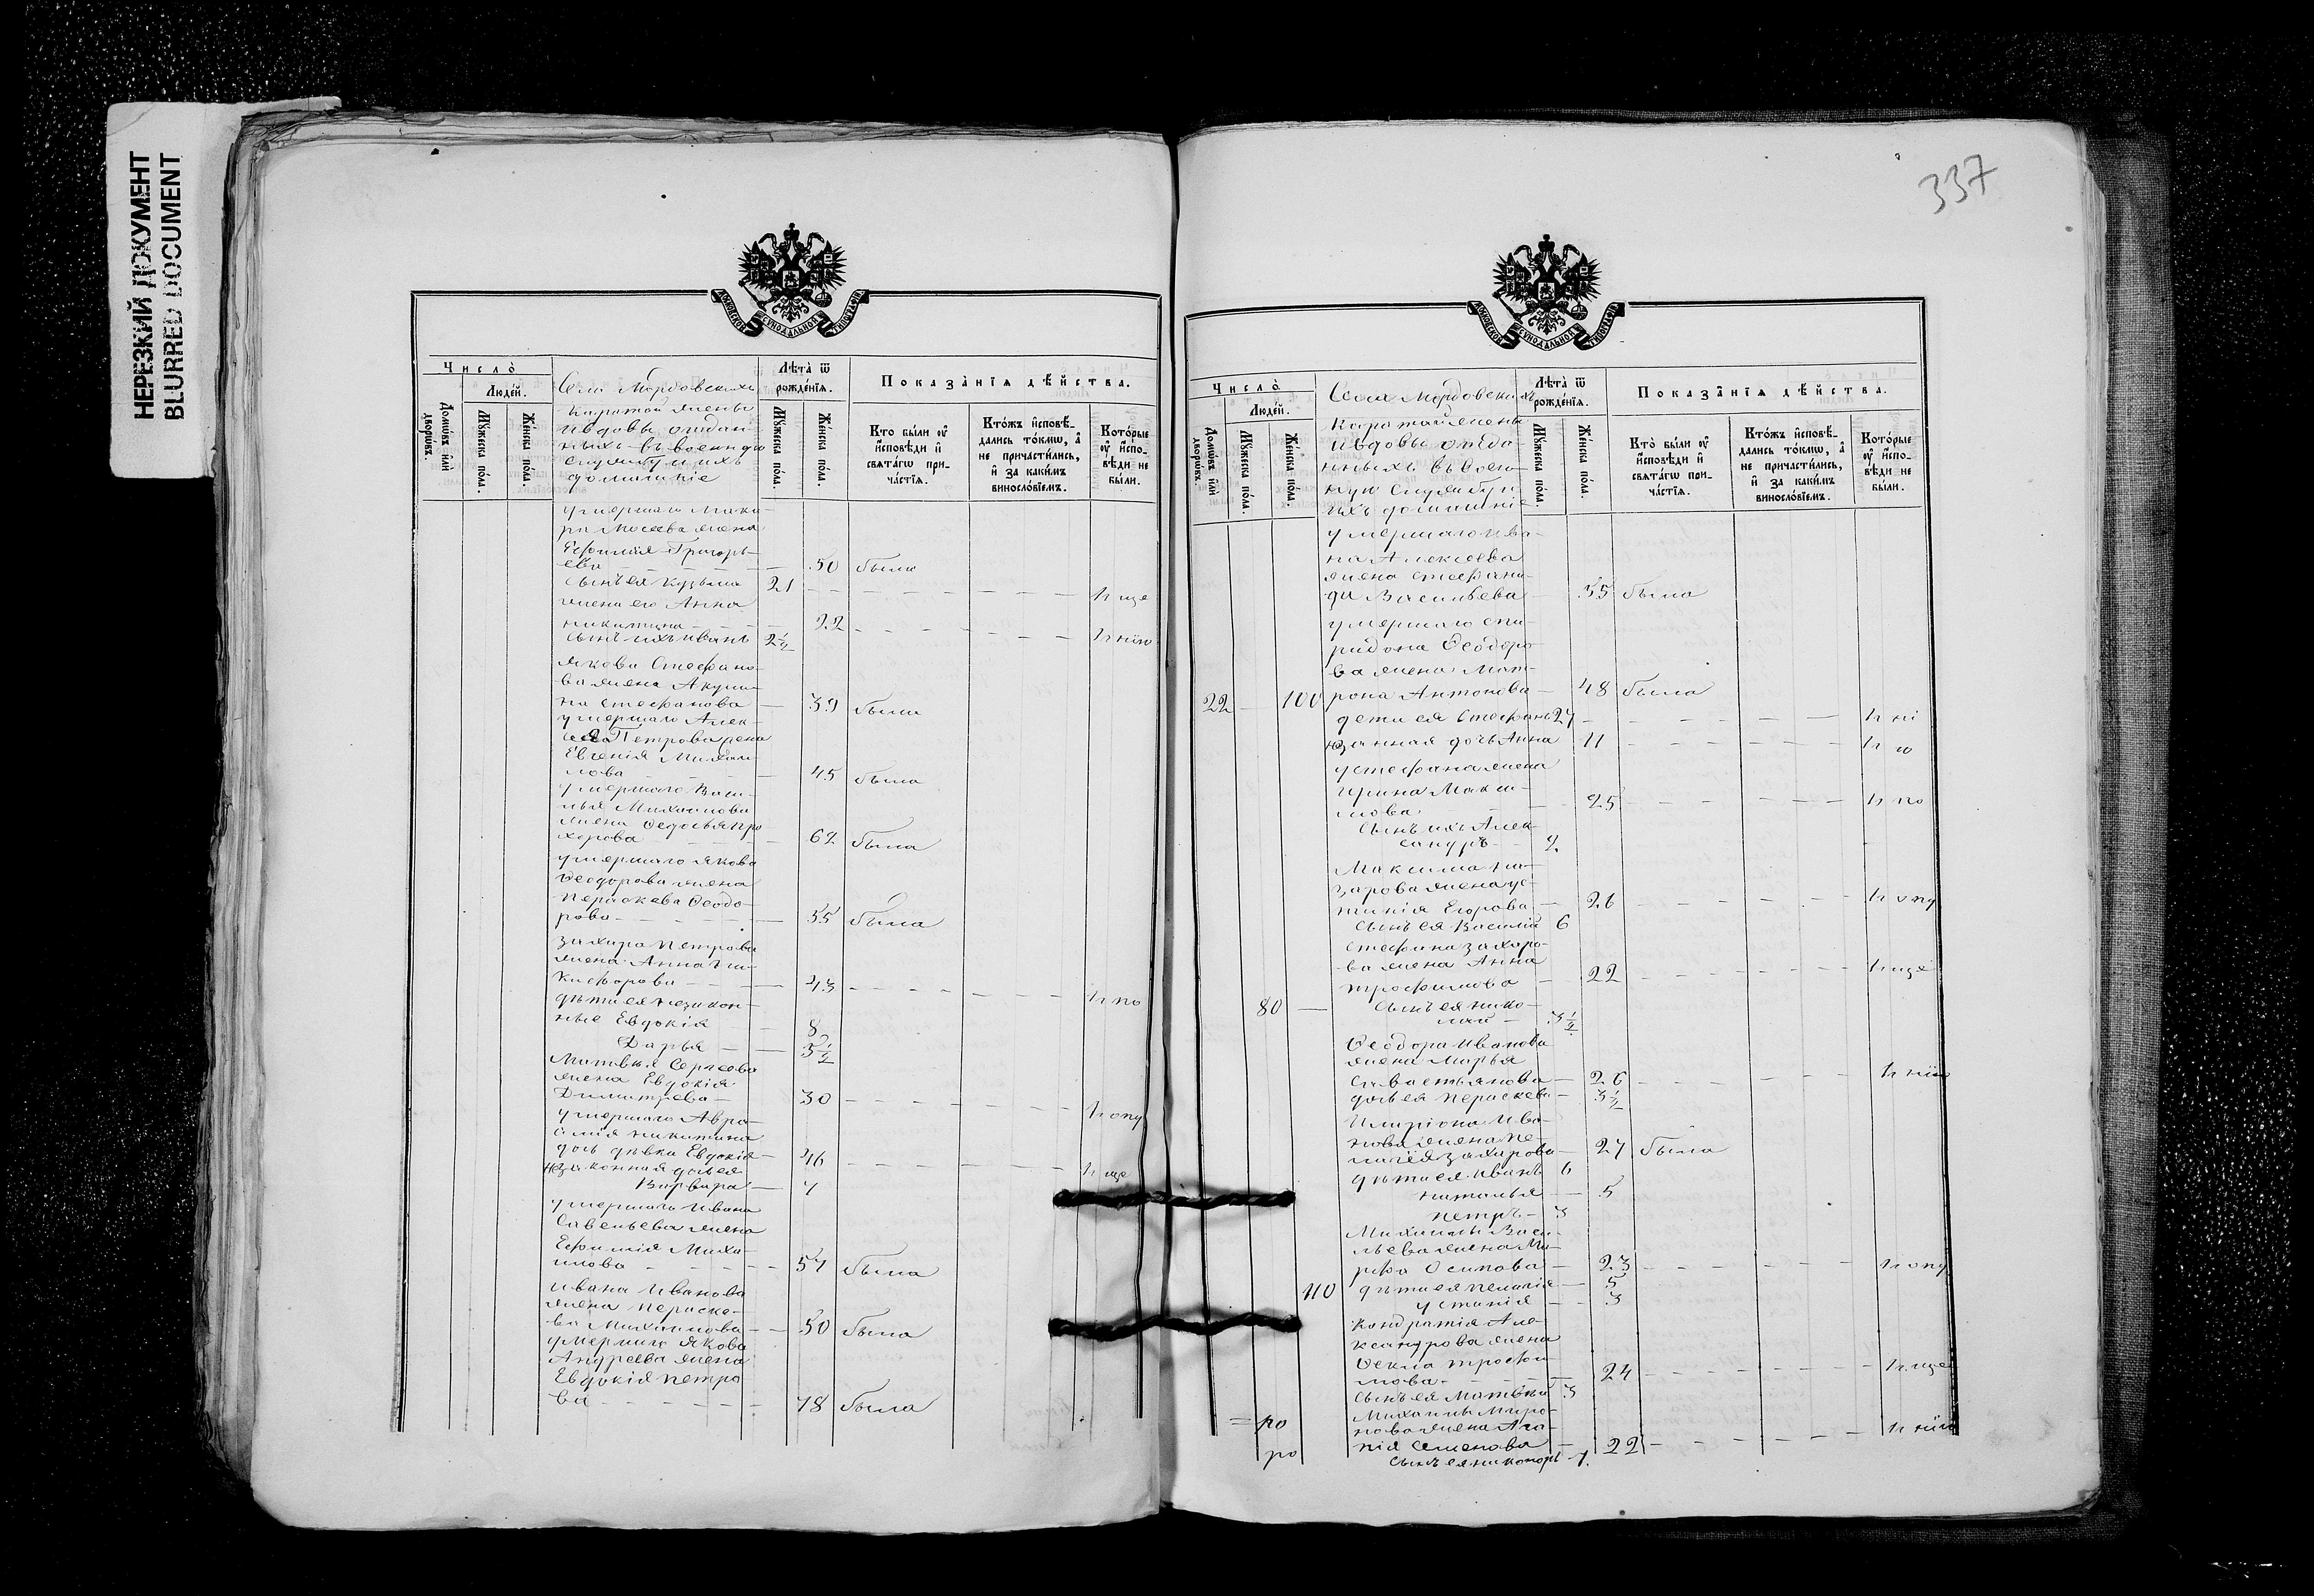 НЕРЕЗКИЙ ДОКУМЕНТ
BLURRED DOCUMENT
МОСКОВСКОЙ СѴНОДАЛЬНОЙ ТИПОГРАФІИ
Число̀
Людей.
Домѡ́въ и҆лѝ дворѡ́въ.
Мꙋ́жеска по́ла.
Же́нска по́ла.
Села Мордовскихъ
Каратай жены
вдовы отдан-
ныхъ въ военную
службу и ихъ
домашніе
Лѣ́та ѿ рожде́нїѧ.
Мꙋ́жеска по́ла.
Же́нска по́ла.
Показа̑нїѧ дѣ́йства.
Кто̀ бы́ли ᲂу҆ и҆сповѣди и҆ свѧта́гѡ при-
ча́стїѧ.
Кто́жъ и҆сповѣ́-
дались то́кмѡ, а҆
не причасти́лись,
и҆ за каки́мъ
винослѡ́вїемъ.
Кото́рые
ᲂу҆ и҆спо-
вѣди не
бы́ли.
умершаго Мака-
ра Моисеева жена
Евфимія Григорь-
ева 50 была
сынъ ея Кузьма 21
жена его Анна
Никитина 22
сынъ ихъ Иванъ 2½
Якова Стефано-
ва жена Акули-
на Стефанова 39 была
умершаго Алек-
сея Петрова жена
Евгенія Михаи-
лова 45 была
умершаго Васи-
лья Михаилова
жена Федосья Про
хорова 62 была
умершаго Якова
Феодорова жена
Параскева Феодо-
рова 55 была
Захара Петрова
жена Анна Ни-
кифорова 43 н по
дѣти ея незакон-
ные Евдокія 8
Дарья 3½
Матвѣя Сергеева
жена Евдокія
Димитрева 30 н опу
умершаго Авра-
амія Никитина
дочь дѣвка Евдокія 46 н ще
незаконная дочь ея
Варвара 7
умершаго Ивана
Савельева жена
Евфимія Миха-
илова 57 была
Ивана Иванова
жена Параске-
ва Михаилова 50 была
умершаго Якова
Андреева жена
Евдокія Петро
ва 78 была
337
МОСКОВСКОЙ СѴНОДАЛЬНОЙ ТИПОГРАФІИ
Число̀
Людей.
Домѡ́въ и҆лѝ дворѡ́въ.
Мꙋ́жеска по́ла.
Же́нска по́ла.
Села Мордовскихъ
Каратай жены
вдовы отда-
нныхъ въ воен-
ную службу и
ихъ домашніе
Лѣ́та ѿ рожде́нїѧ.
Мꙋ́жеска по́ла.
Же́нска по́ла.
Показа̑нїѧ дѣ́йства.
Кто̀ бы́ли ᲂу҆ и҆сповѣди и҆ свѧта́гѡ при-
ча́стїѧ.
Кто́жъ и҆сповѣ́-
дались то́кмѡ, а҆
не причасти́лись,
и҆ за каки́мъ
винослѡ́вїемъ.
Кото́рые
ᲂу҆ и҆спо-
вѣди не
бы́ли.
умершаго Ива-
на Алексеева
жена Стефани-
да Васильева 55 была
умершаго Спи-
ридона Феодоро-
ва жена Мат-
22 100 рона Антонова 48 была
дети ея Стефанъ 27
незаконная дочь Анна 11
у Стефана жена
Ирина Макси-
мова 25 н по
сынъ ихъ Алек-
сандръ 2
Максима На-
зарова жена Ус-
тинія Егорова 26 н опу
сынъ ея Василій 6
Стефана Захаро-
ва жена Анна
Трофимова 22 н ще
80 сынъ ея Нико-
лай 3½
Феодора Иванова
жена Марья
Савастьянова 26
дочь ея Параскева 3½
Иларіона Ива-
нова жена Пе-
лагія Захарова 27 была
дѣти ея Иванъ 6
Наталья 5
Петръ 3
Михаила Васи-
льева жена Ма-
рфа Осипова 23 н опу
110 дѣти ея Пелагія 5
Устинія 3
Кондратія Але-
ксандрова жена
Фекла Трофи-
мова 24 н ще
сынъ ея Матвѣй 3
Михаила Миро-
нова жена Ага-
пія Семенова 22
сынъ ея Никаноръ 1.